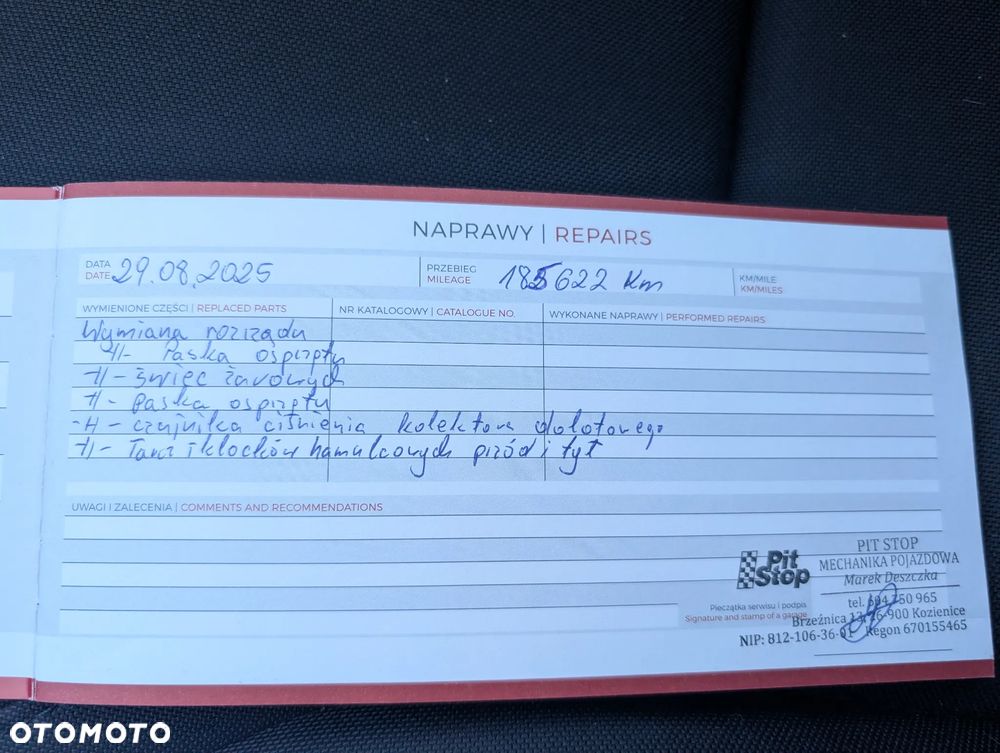 NAPRAWY | REPAIRS
DATA
DATE 29.08.2025
PRZEBIEG
MILEAGE 185622 Km
KM/MILE
KM/MILES
WYMIENIONE CZĘŚCI | REPLACED PARTS
NR KATALOGOWY | CATALOGUE NO.
WYKONANE NAPRAWY | PERFORMED REPAIRS
Wymiana rozrządu
-//- Paska osprzętu
-//- świec żarowych
-//- paska osprzętu
-//- czujnika ciśnienia kolektora dolotowego
-//- Tarcz i klocków hamulcowych przód i tył
UWAGI I ZALECENIA | COMMENTS AND RECOMMENDATIONS
Pit Stop
PIT STOP
MECHANIKA POJAZDOWA
Marek Deszczka
Pieczątka serwisu i podpis
Signature and stamp of a garage
tel. 950 965
Brzeźnica 900 Kozienice
NIP: 812-106-36- Regon 670155465
OTOMOTO